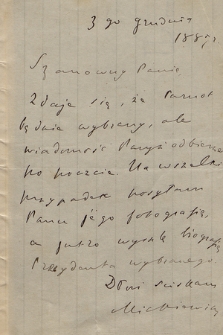 3 go grudnia
1887
Szanowny Panie
Zdaje się, że Carnot
będzie wybrany, ale
wiadomość Paryż odbierze
po poczcie. Na wszelki
przypadek posyłam
Panu jego fotografię,
a jutro wyszlę biografię
Prezydenta wybranego.
Dłoń ściskam
Mickiewicz